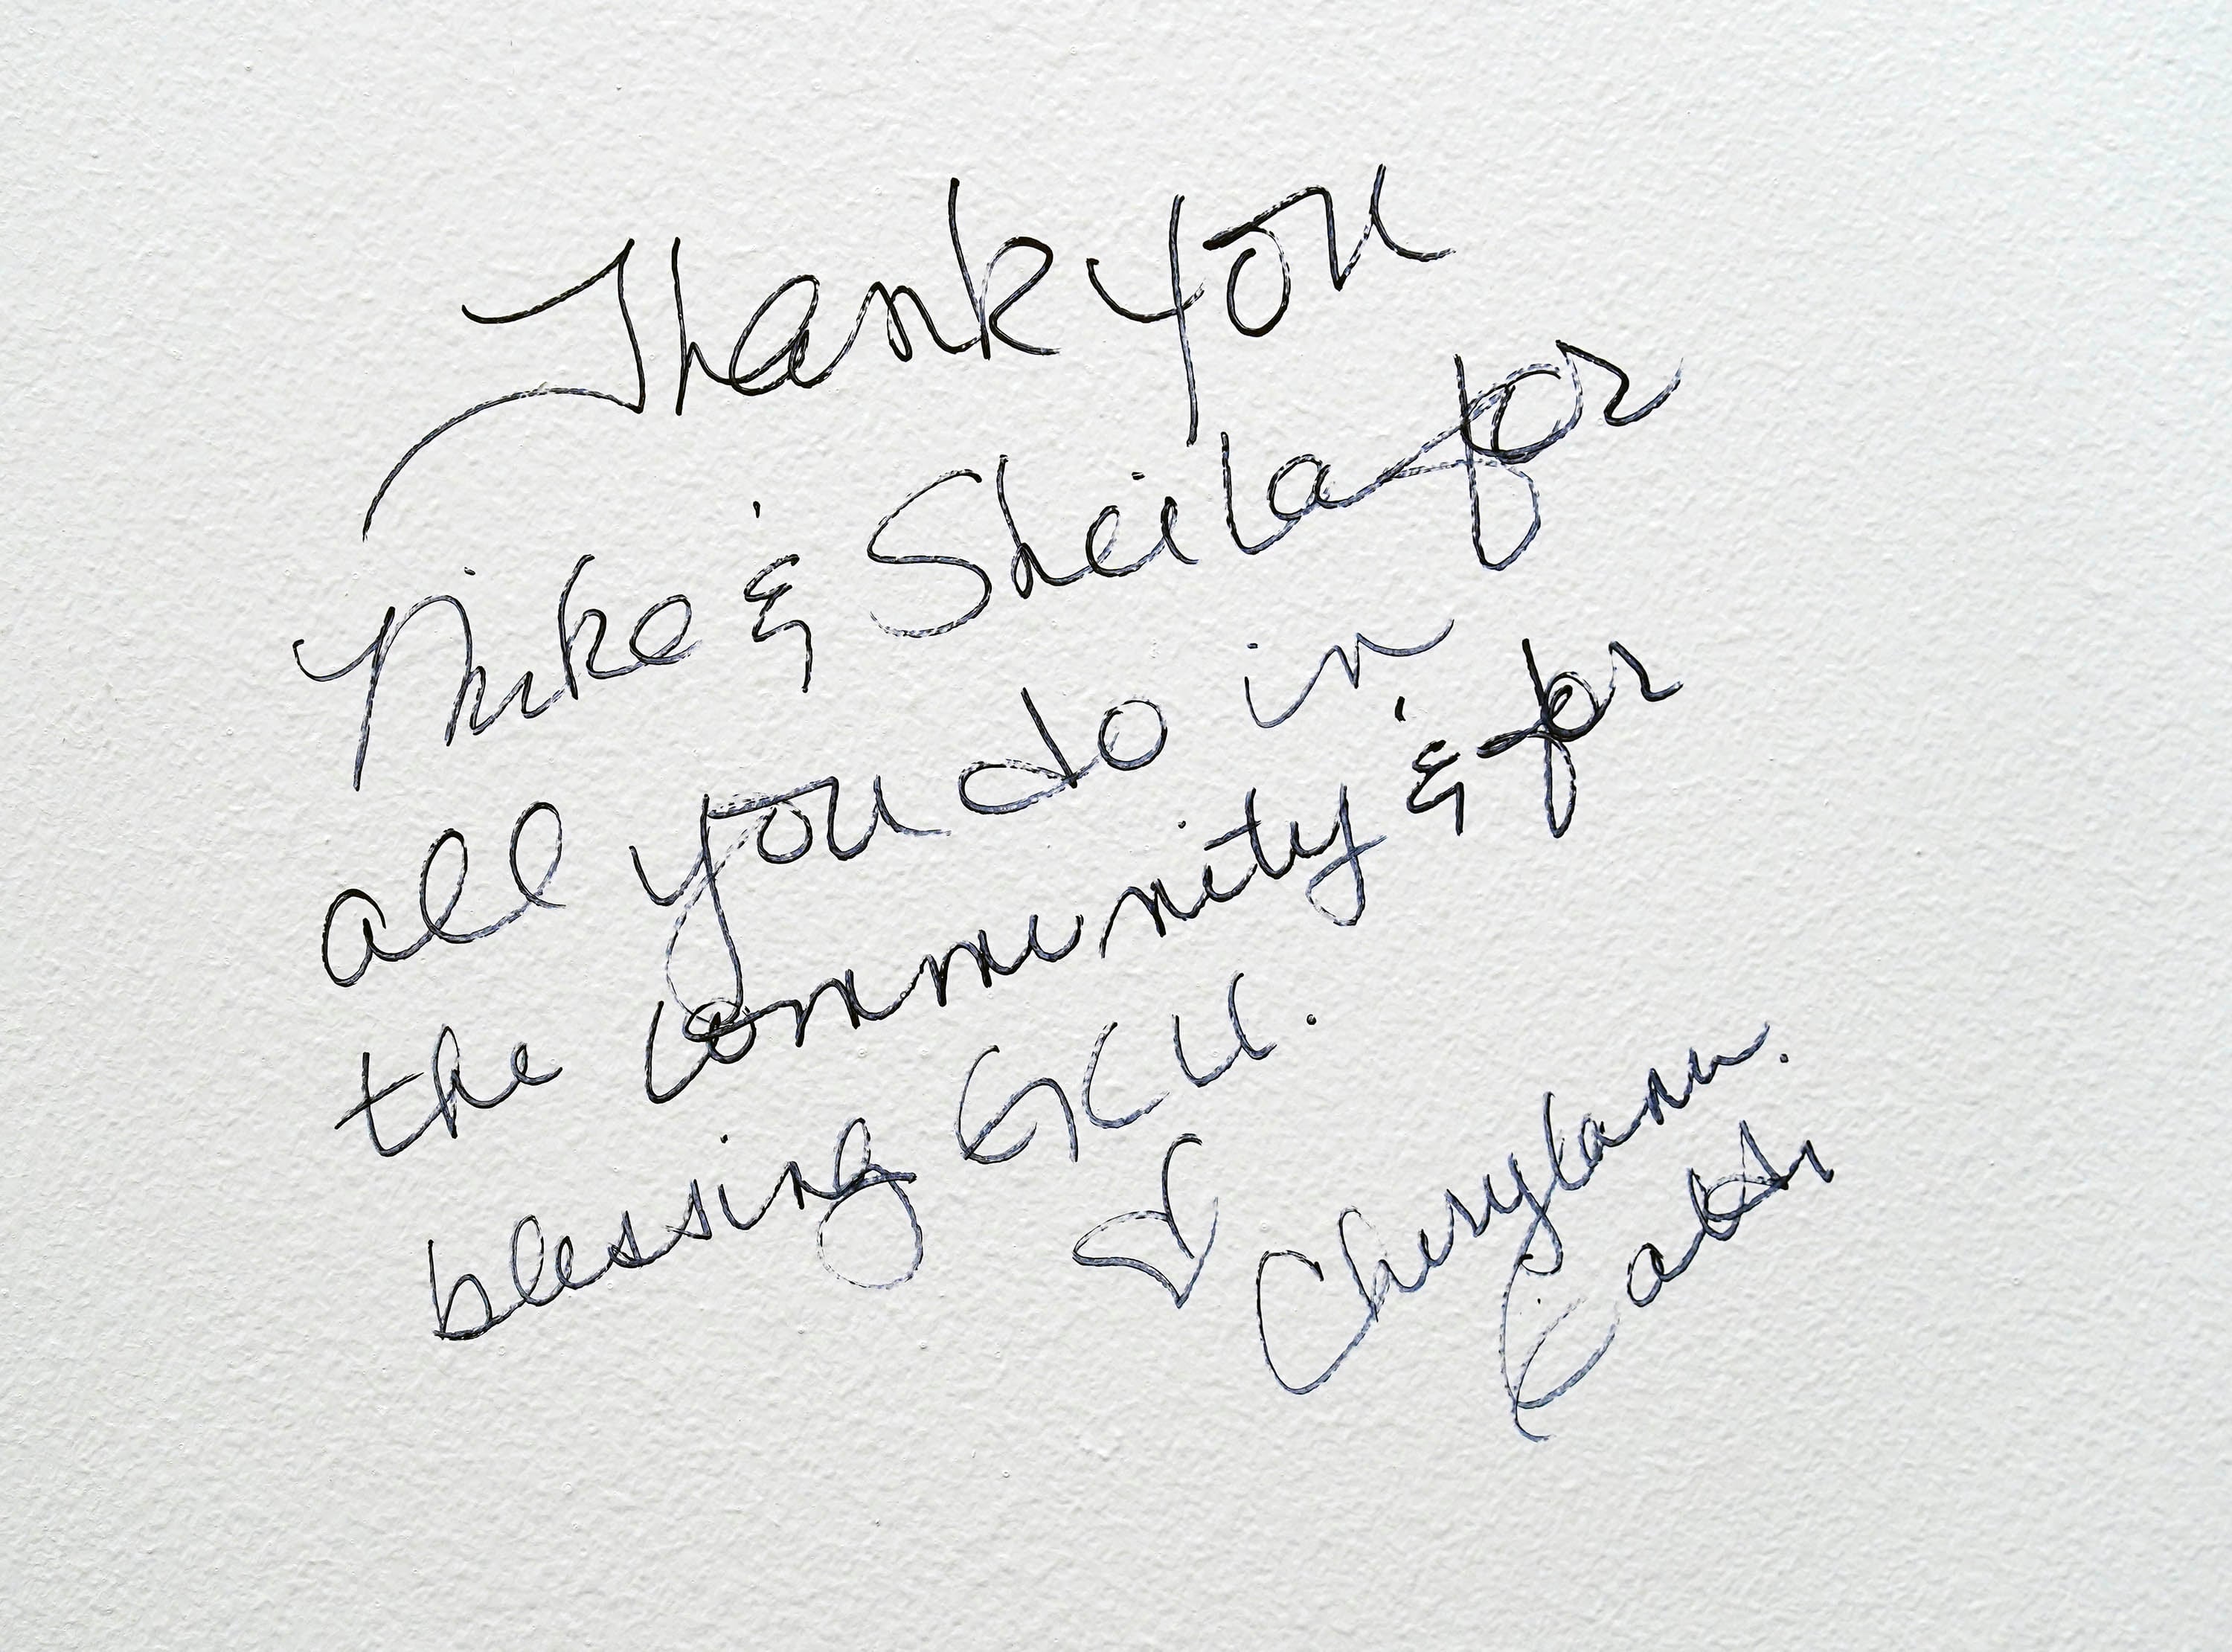 Thank You
Mike & Sheila for
all you do in
the community & for
blessing GCU.
♡ Cherylann.